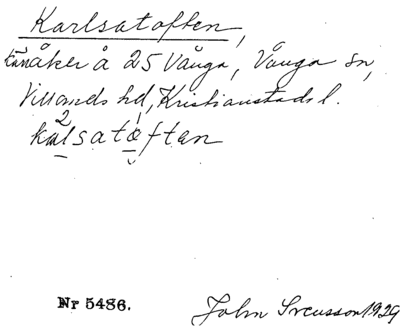 Karlsatoften,
åker å 25 Vånga, Vånga sn,
Villands hd, Kristianstads l.
kalsatöften
Nr 5486.
John Svensson 1929